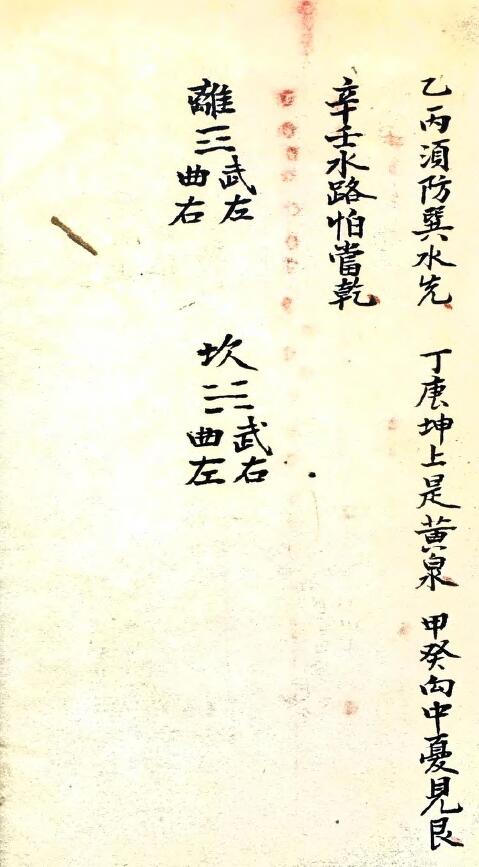 乙丙須防巽水先 丁庚坤上是黄泉 甲癸向中憂見艮
辛壬水路怕當乾
離 坎
三 三
武左 武右
曲右 曲左